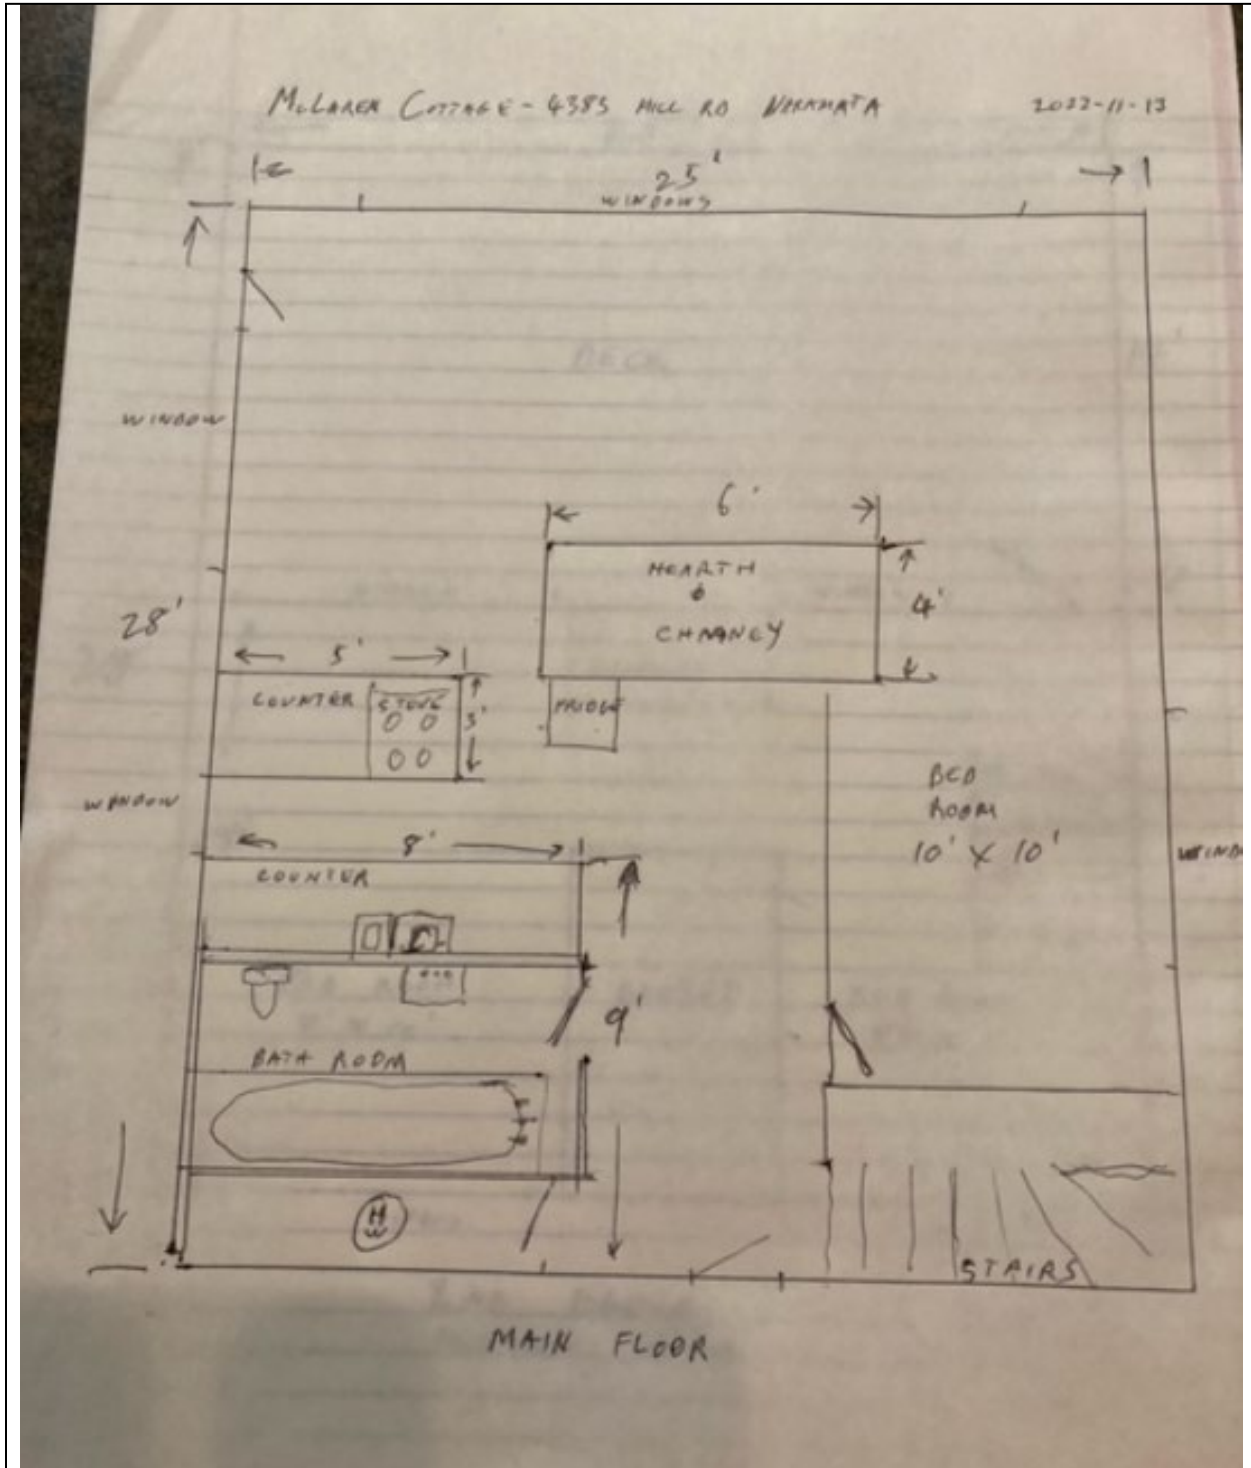 McLAREN COTTAGE - 4385 HILL RD NARAMATA 2022-11-13
25'
WINDOWS
WINDOW
6'
HEARTH
&
CHIMNEY
4'
28'
5'
COUNTER
STOVE
3'
FRIDGE
WINDOW
BED
ROOM
10' X 10'
8'
COUNTER
9'
BATH ROOM
HW
STAIRS
MAIN FLOOR